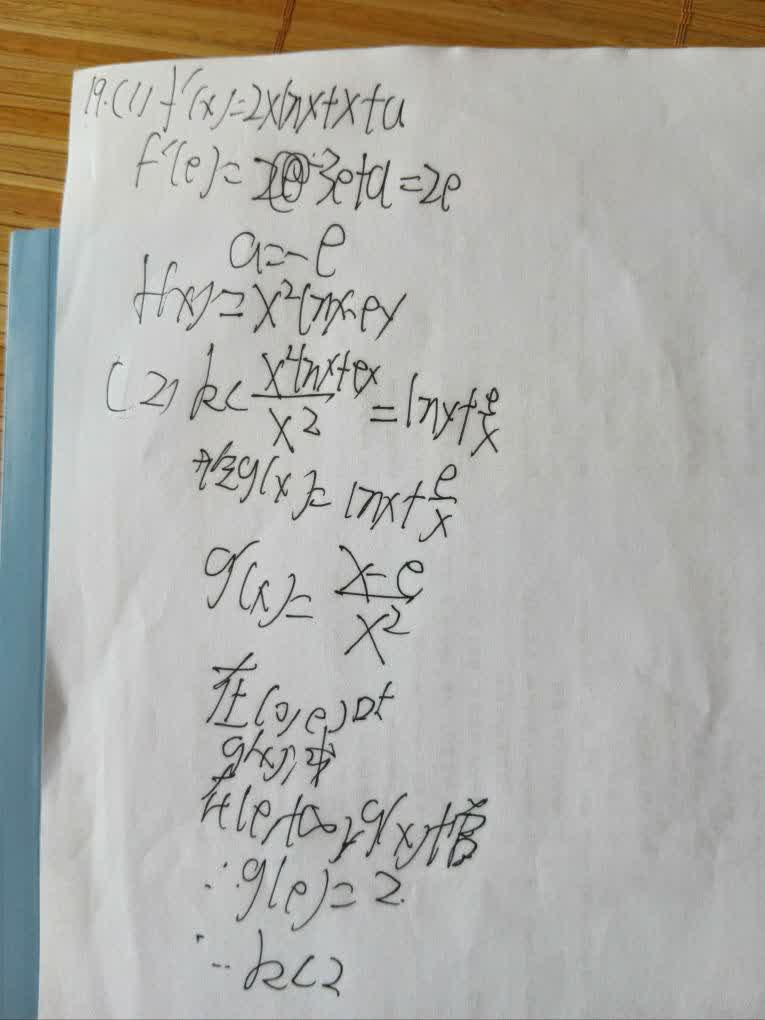 19.(1) f'(x)=2xlnx+x+a
f'(e)=3e+a=2e
a=-e
f(x)=x²lnx-ex
(2) k< \frac{x²lnx+ex}{x²} = lnx+\frac{e}{x}
g(x)=lnx+\frac{e}{x}
g'(x)=\frac{x-e}{x²}
在(0,e)时
g(x)
在(e,+∞)g(x)增
∴g(e)=2
∴k<2